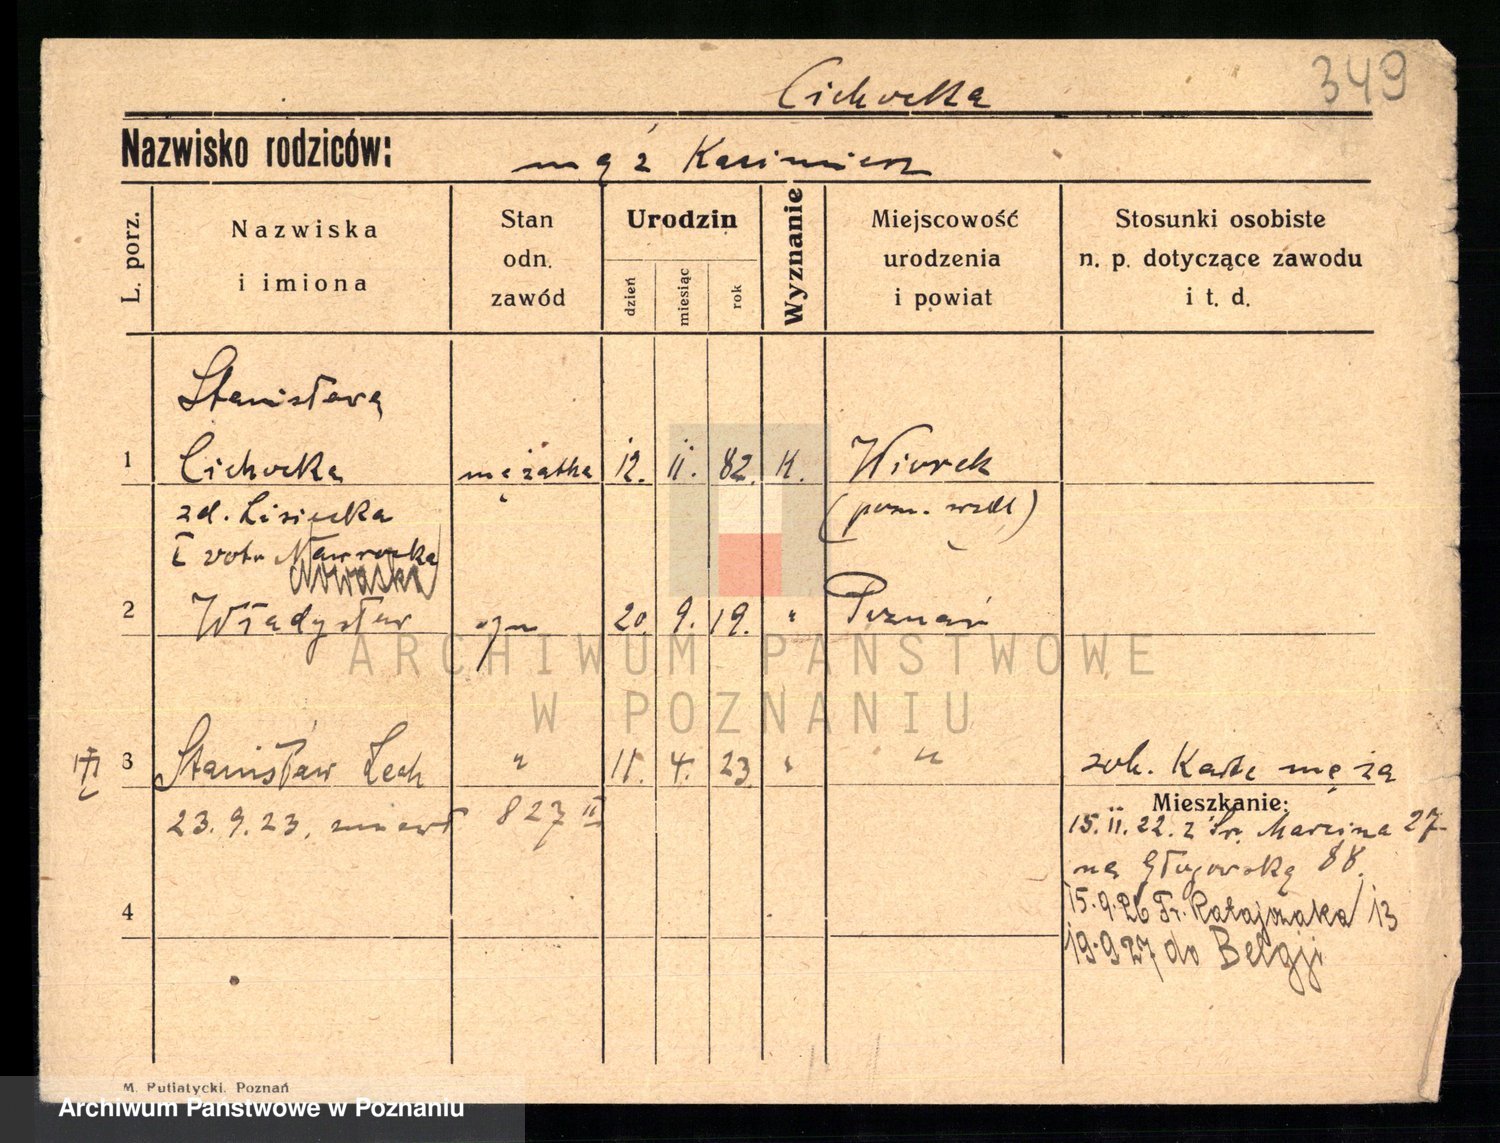 349
Cichocka
Nazwisko rodziców:
mąż Kazimierz
L. porz.
Nazwiska
i imiona
Stan
odn.
zawód
Urodzin
dzień
miesiąc
rok
Wyznanie
Miejscowość
urodzenia
i powiat
Stosunki osobiste
n. p. dotyczące zawodu
i t. d.
Stanisława
1 Cichocka mężatka 12. 11. 82. K. Wiorek
zd. Lisiecka (pozn. wsch)
I voto Nawrocka
Nowaska
2 Władysław syn 20. 9. 19. " Poznań
ARCHIWUM PANSTWOWE
W POZNANIU
3 Stanisław Lech " 11. 4. 23 " " zob. Kartę męża
23. 9. 23. zmarł 827 II
Mieszkanie:
15. 11. 22. z Św. Marcina 27
na Głogowską 88.
15. 9. 26 Fr. Ratajczaka 13
19. 9 27 do Belgji
4
M. Putiatycki, Poznań
Archiwum Państwowe w Poznaniu